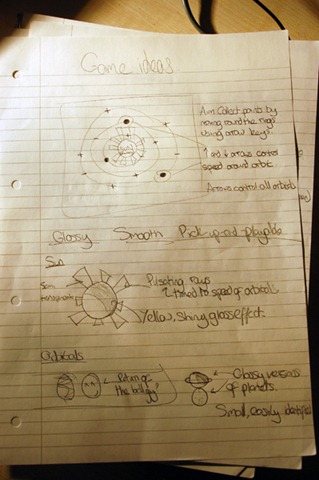 Game ideas
Aim: Collect points by
moving round the rings
using arrow keys.
↑ and ↓ arrows control
speed around orbit.
Arrows control all orbitals
Glossy Smooth Pick-up-and playable
Sun
Semi
transparent
Pulsating rays
timed to speed of orbitals
Yellow, shiny glass effect.
Orbitals
Return of
the biology?
Glossy versions
of planets.
Small, easily identified